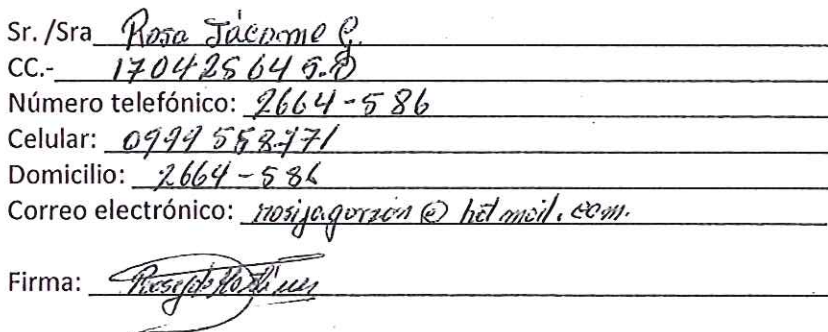 Sr./Sra Rosa Jácome G.
CC.- 170425645-0
Número telefónico: 2664-586
Celular: 0999558771
Domicilio: 2664-586
Correo electrónico: rosijagarzon@hotmail.com.
Firma: